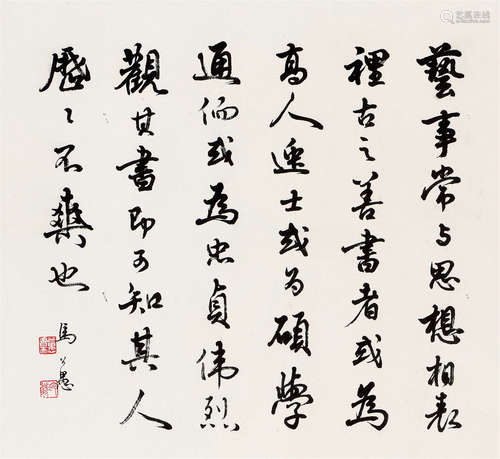 藝事常与思想相表
裡古之善書者或為
高人逸士或为碩學
通儒或為忠貞偉烈
觀其書即可知其人
歷〻不爽也
馬公愚